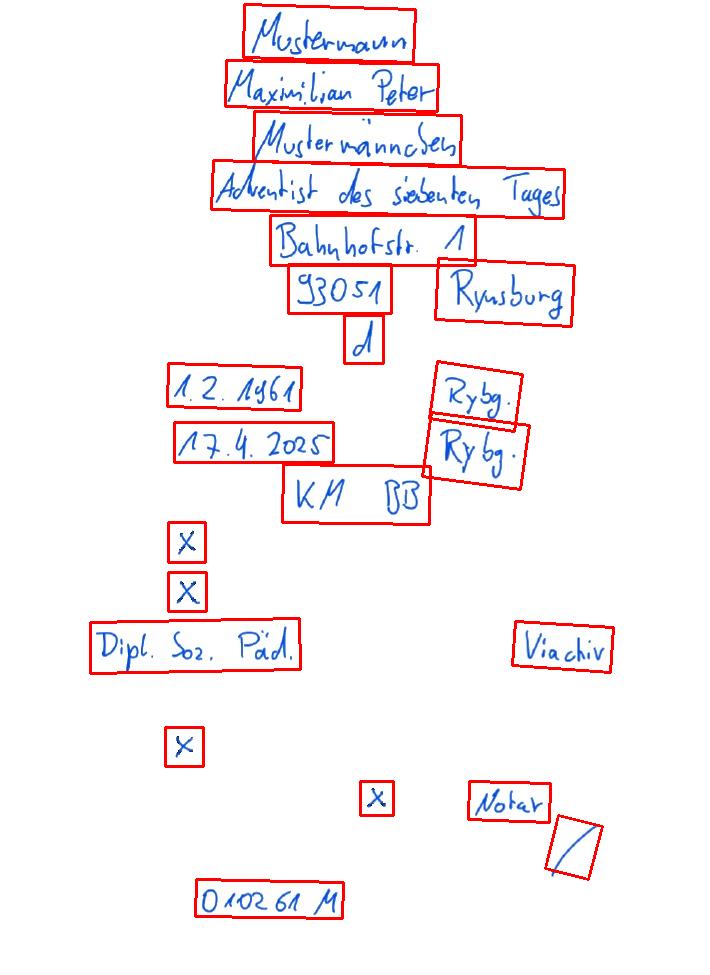 Mustermann
Maximilian Peter
Mustermännchen
Adventist des siebenten Tages
Bahnhofstr. 1
93051 Rynsburg
d
1.2.1961 Rybg.
17.4.2025 Rybg.
KM BB
X
X
Dipl. Soz. Päd. Viachiv
X
X Notar
/
010261 M